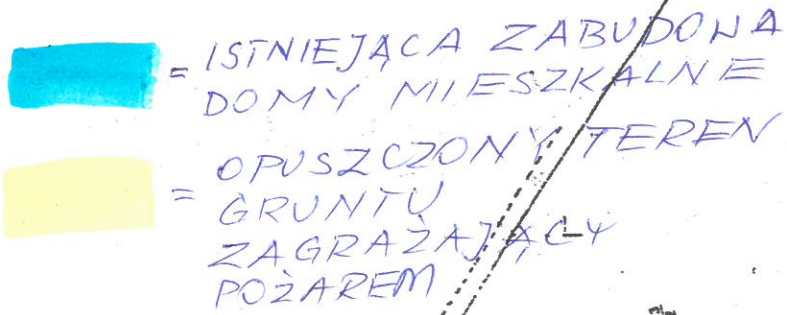 = ISTNIEJĄCA ZABUDOWA
DOMY MIESZKALNE
= OPUSZCZONY TEREN
GRUNTU
ZAGRAŻAJĄCY
POŻAREM